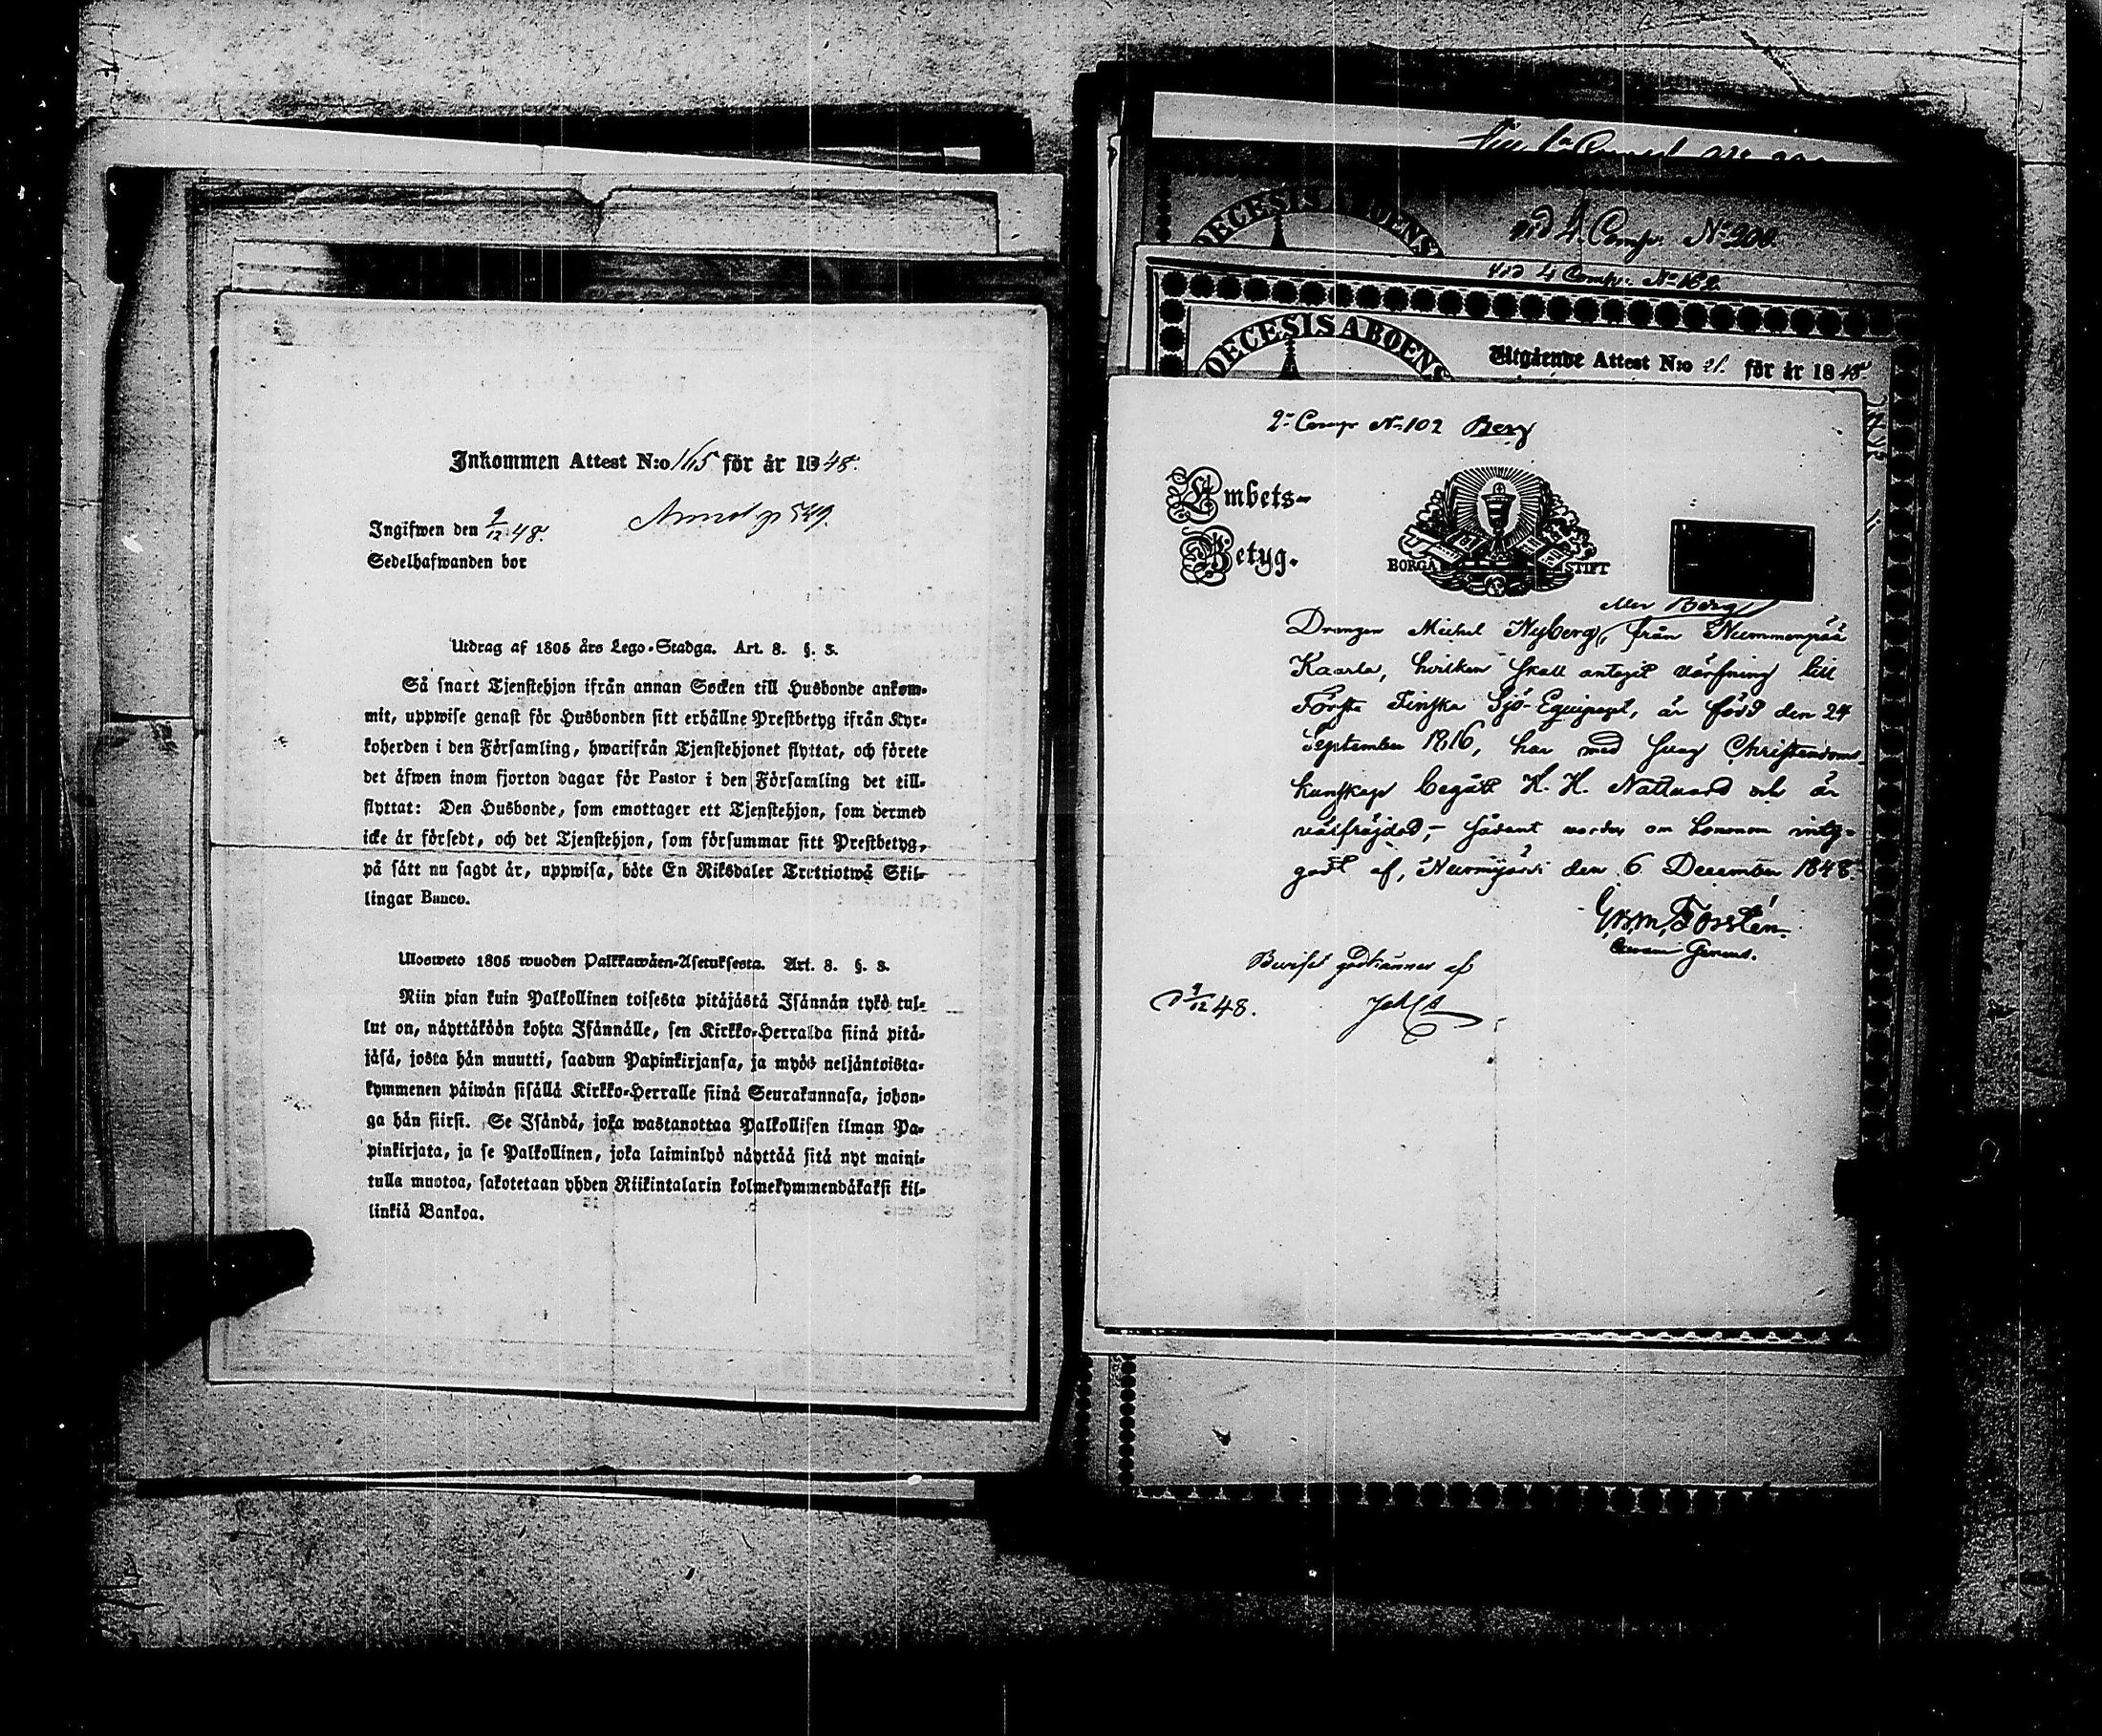 Inkommen Attest N:o 165 för år 1848.
Ingifwen den 9/12 48.
Sedelhafwanden bor
Utdrag af 1805 års Lego-Stadga. Art. 8. §. 3.
Så snart Tjenstehjon ifrån annan Socken till Husbonde ankom-
mit, uppwise genast för Husbonden sitt erhållne Prestbetyg ifrån Kyr-
koherden i den Församling, hwarifrån Tjenstehjonet flyttat, och förete
det äfwen inom fjorton dagar för Pastor i den Församling det till-
flyttat: Den Husbonde, som emottager ett Tjenstehjon, som dermed
icke är försedt, och det Tjenstehjon, som försummar sitt Prestbetyg,
på sätt nu sagdt är, uppwisa, böte En Riksdaler Trettiotwå Skil-
lingar Banco.
Ulosweto 1805 wuoden Palkkawäen-Asetuksesta. Art. 8. §. 3.
Niin pian kuin Palkollinen toisesta pitäjästä Isännän tykö tul-
lut on, näyttäköön kohta Isännälle, sen Kirkko-Herralda siinä pitä-
jäsä, josta hän muutti, saadun Papinkirjansa, ja myös neljäntoista-
kymmenen päiwän sisällä Kirkko-Herralle siinä Seurakunnasa, johon-
ga hän siirsi. Se Isändä, joka wastanottaa Palkollisen ilman Pa-
pinkirjata, ja se Palkollinen, joka laiminlyö näyttää sitä nyt maini-
tulla muotoa, sakotetaan yhden Riikintalarin kolmekymmendäkaksi kil-
linkiä Bankoa.
vid 4 Comp. N:o 200.
vid 4 Comp. N:o
DECESIS ABOENS
DECESIS ABOENS
Utgående Attest N:o 21. för år 1848.
2:a Comp N:o 102 Berg
Embets-
Betyg.
BORGÅ STIFT
eller Berg
Drengen Michel Nyberg, från Nummenpää
Kaarla, hvilken skall antagit värfning till
Första Finska Sjö-Equipaget, är född den 24
September 1816, har med svag Christendoms
kunskap begått H. H. Nattvard och är
välfräjdad, – sådant varder om honom intyg-
gadt af, Nurmijärvi den 6 December 1848.
Forstén.
Beviset godkännes af
d 9/12 48.